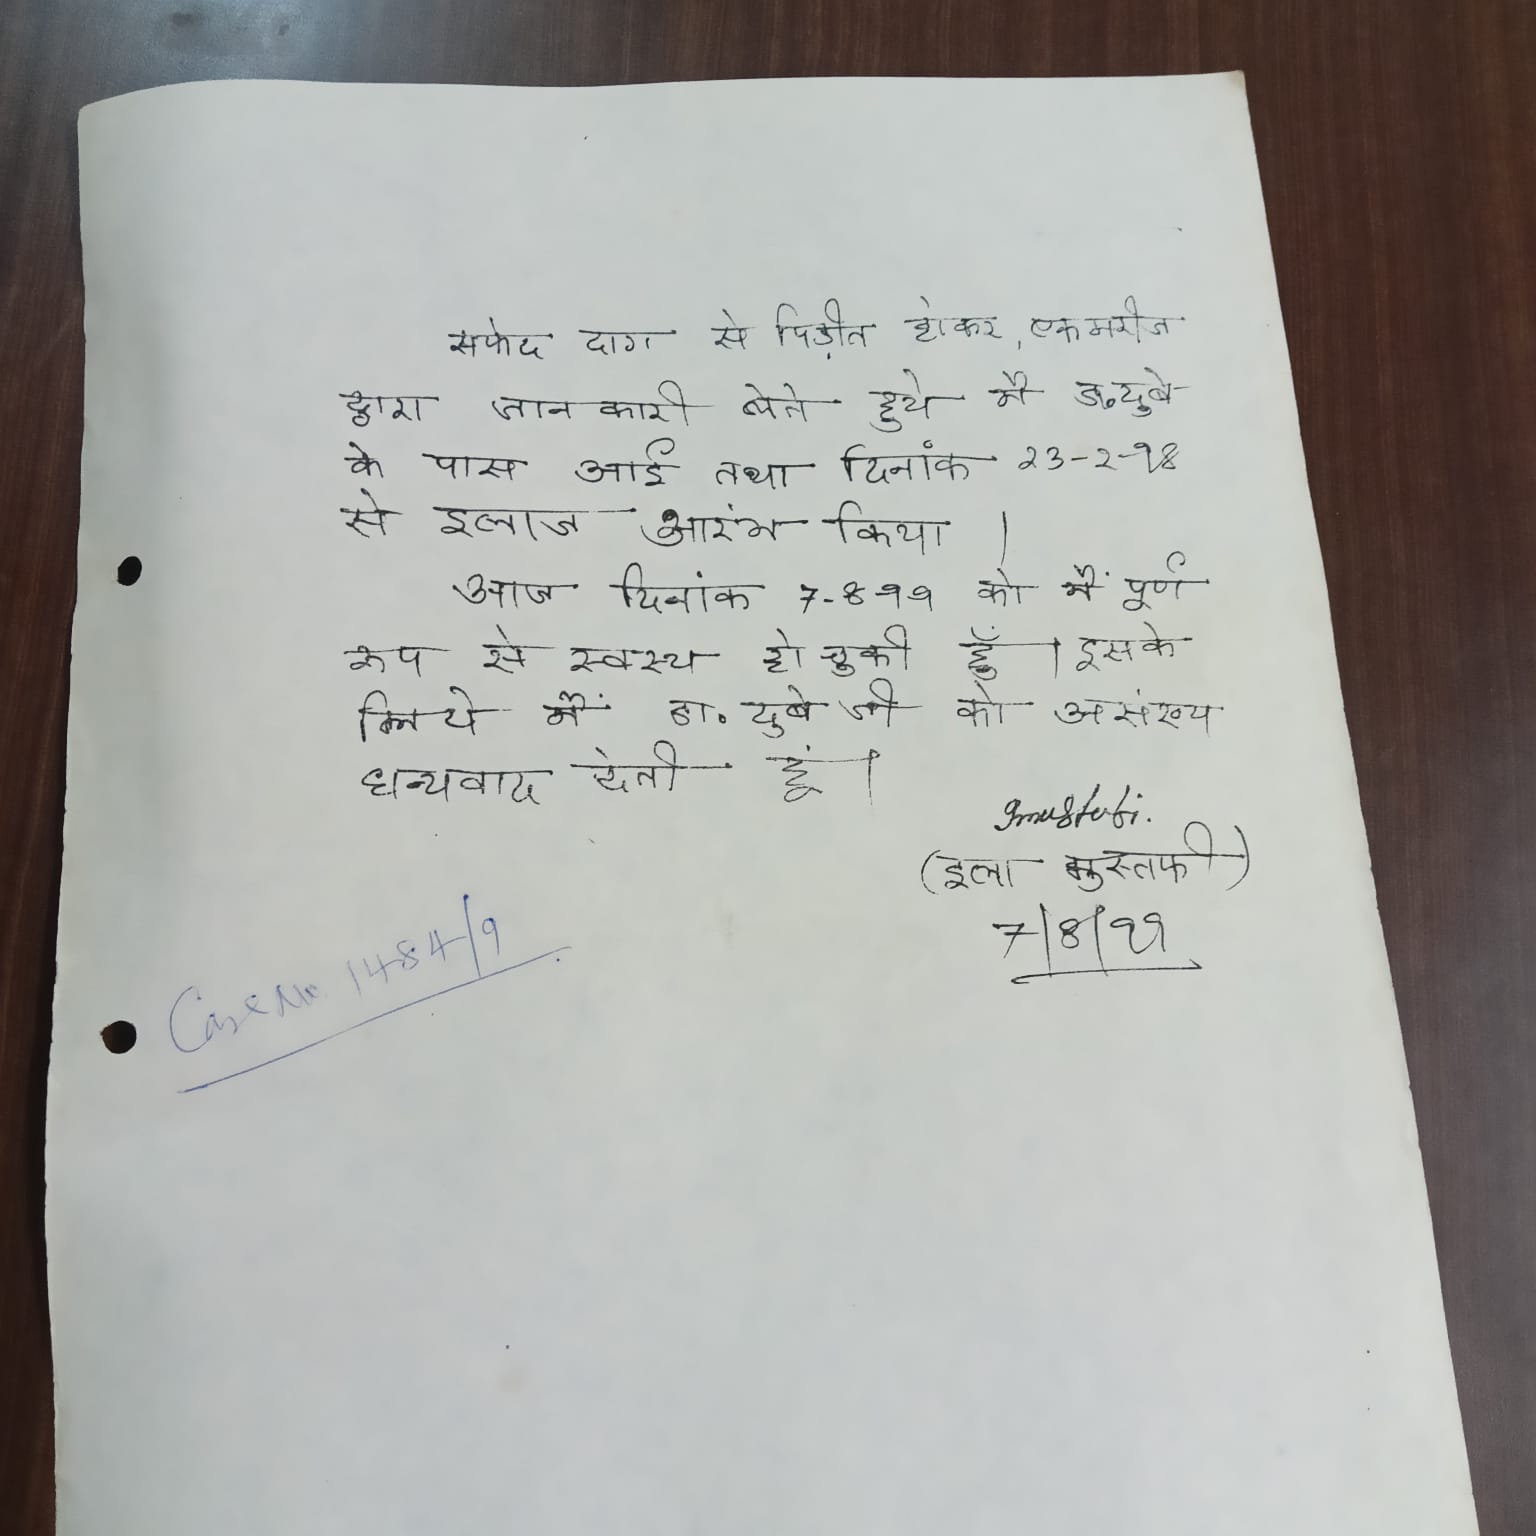 सफेद दाग से पिड़ीत होकर, एक मरीज
द्वारा जानकारी लेते हुये मै डा॰ दुबे
के पास आई तथा दिनांक 23-2-98
से इलाज आरंभ किया |
आज दिनांक 7-8-99 को मैं पूर्ण
रूप से स्वस्थ हो चुकी हूँ | इसके
लिये मैं डा॰ दुबे जी को असंख्य
धन्यवाद देती हूं |
Imustafi.
(इला मुस्तफी)
7/8/99
Case No. 1484/9